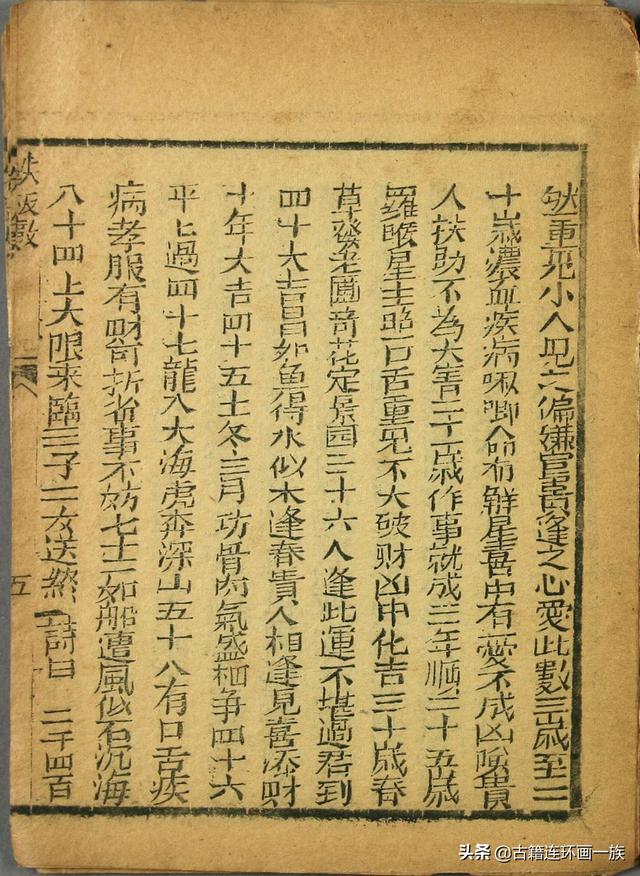 然重見小人見之偏嫌官貴逢之心愛此數三歲至二
十歲濃血疾病啾唧命有解星喜中有憂不成凶險貴
人扶助不為大害二十一歲作事就成三年順三十五歲
羅睺星主照口舌重見不大破财凶中化吉三十歲春
草發芽園奇花定景园三十六人逢此運不堪過君到
四十大吉昌如魚得水似木逢春貴人相逢見喜添财
十年大吉四十五十冬三月功骨肉氣盛相争四十六
平上過四十七龍入大海虎奔深山五十八有口舌疾
病孝服有财可折省事不妨七十二如船遭風似石沉海
八十四上大限来臨三子二女送終 詩曰 二千四百
鉄板數
五
头条 @古籍连环画一族